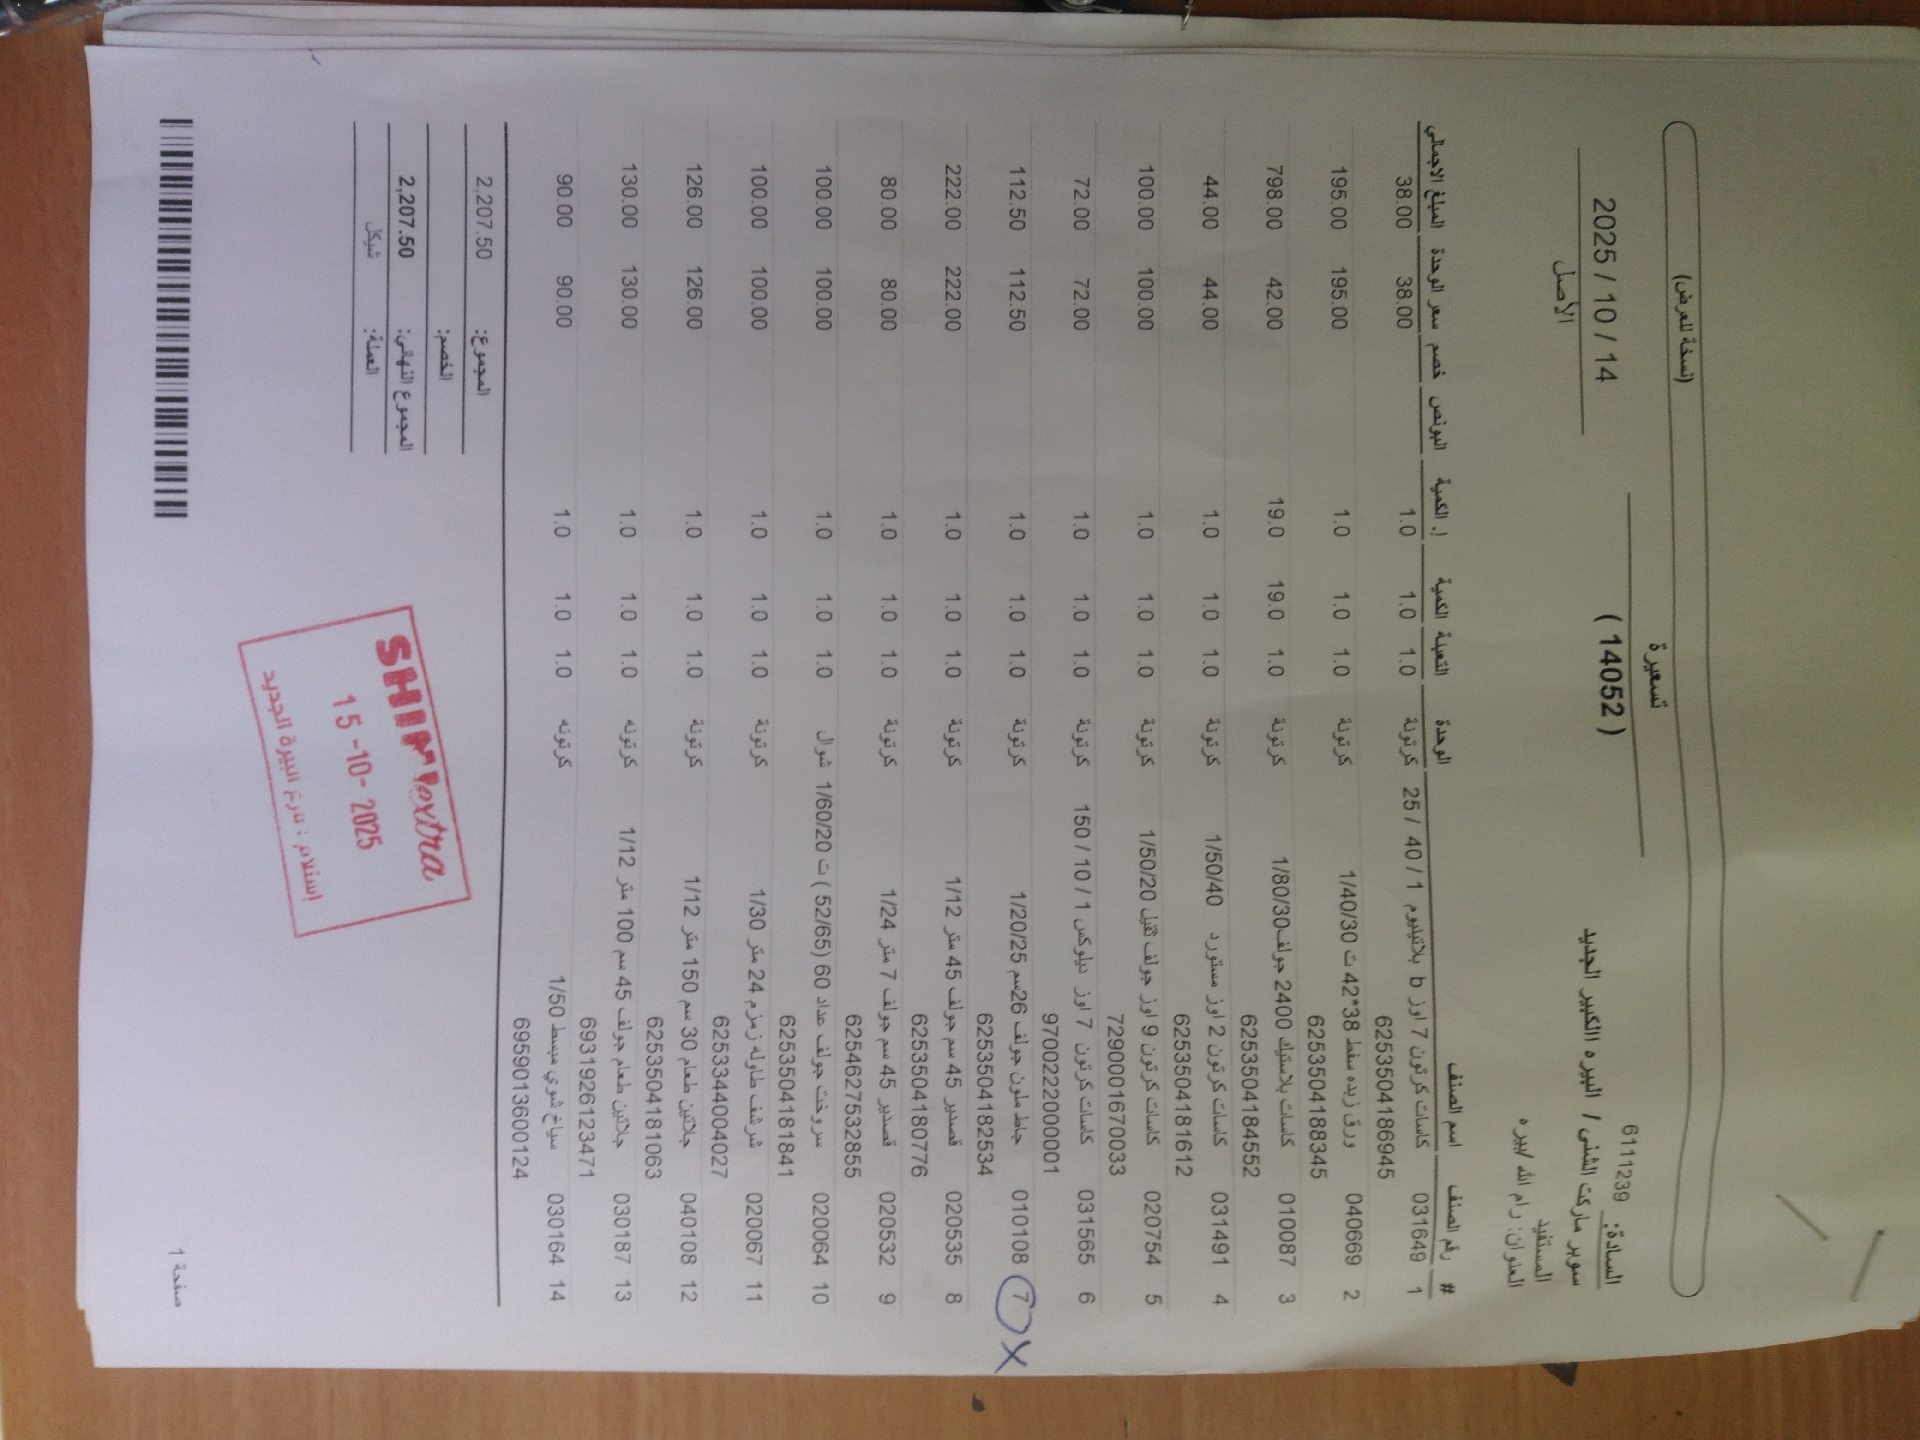 (نسخة للعرض)
تسعيرة
2025 / 10 / 14
( 14052 )
الأصل
6111239
السادة:
سوبر ماركت الشني / البيره الكبير الجديد
المستفيد
العنوان: رام الله /بيره
# رقم الصنف اسم الصنف الوحدة التعبئة الكمية إ. الكمية البونص خصم سعر الوحدة المبلغ الاجمالي
1 031649 كاسات كرتون 7 اوز b بلاتينيوم 1 / 40 / 25 كرتونة 1.0 1.0 1.0 38.00 38.00
6253504186945
2 040669 ورق زبده سفط 38*42 ت 1/40/30 كرتونة 1.0 1.0 1.0 195.00 195.00
6253504188345
3 010087 كاسات بلاستيك 2400 جولف1/80/30 كرتونة 1.0 19.0 19.0 42.00 798.00
6253504184552
4 031491 كاسات كرتون 2 اوز مستورد 1/50/40 كرتونة 1.0 1.0 1.0 44.00 44.00
6253504181612
5 020754 كاسات كرتون 9 اوز جولف ثقيل 1/50/20 كرتونة 1.0 1.0 1.0 100.00 100.00
7290001670033
6 031565 كاسات كرتون 7 اوز ديلوكس 1 / 10 / 150 كرتونة 1.0 1.0 1.0 72.00 72.00
9700222000001
7 010108 جاط ملون جولف 26سم 1/20/25 كرتونة 1.0 1.0 1.0 112.50 112.50
X
6253504182534
8 020535 قصدير 45 سم جولف 45 متر 1/12 كرتونة 1.0 1.0 1.0 222.00 222.00
6253504180776
9 020532 قصدير 45 سم جولف 7 متر 1/24 كرتونة 1.0 1.0 1.0 80.00 80.00
6254627532855
10 020064 سروخت جولف عداد 60 (52/65 ) ت 1/60/20 شوال 1.0 1.0 1.0 100.00 100.00
6253504181841
11 020067 شرشف طاوله زمزم 24 متر 1/30 كرتونة 1.0 1.0 1.0 100.00 100.00
6253344004027
12 040108 جلاتين طعام 30 سم 150 متر 1/12 كرتونة 1.0 1.0 1.0 126.00 126.00
6253504181063
13 030187 جلاتين طعام جولف 45 سم 100 متر 1/12 كرتونه 1.0 1.0 1.0 130.00 130.00
6931926123471
14 030164 سياخ شوي مبسط 1/50 كرتونه 1.0 1.0 1.0 90.00 90.00
6959013600124
المجموع: 2,207.50
الخصم:
المجموع النهائي: 2,207.50
العملة: شيكل
SHINI extra
15 -10- 2025
إستلام : فرع البيرة الجديد
صفحة 1